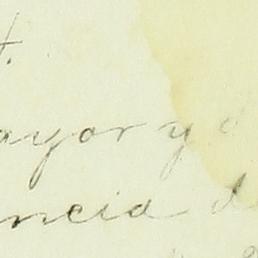 ayor y d
ncia d